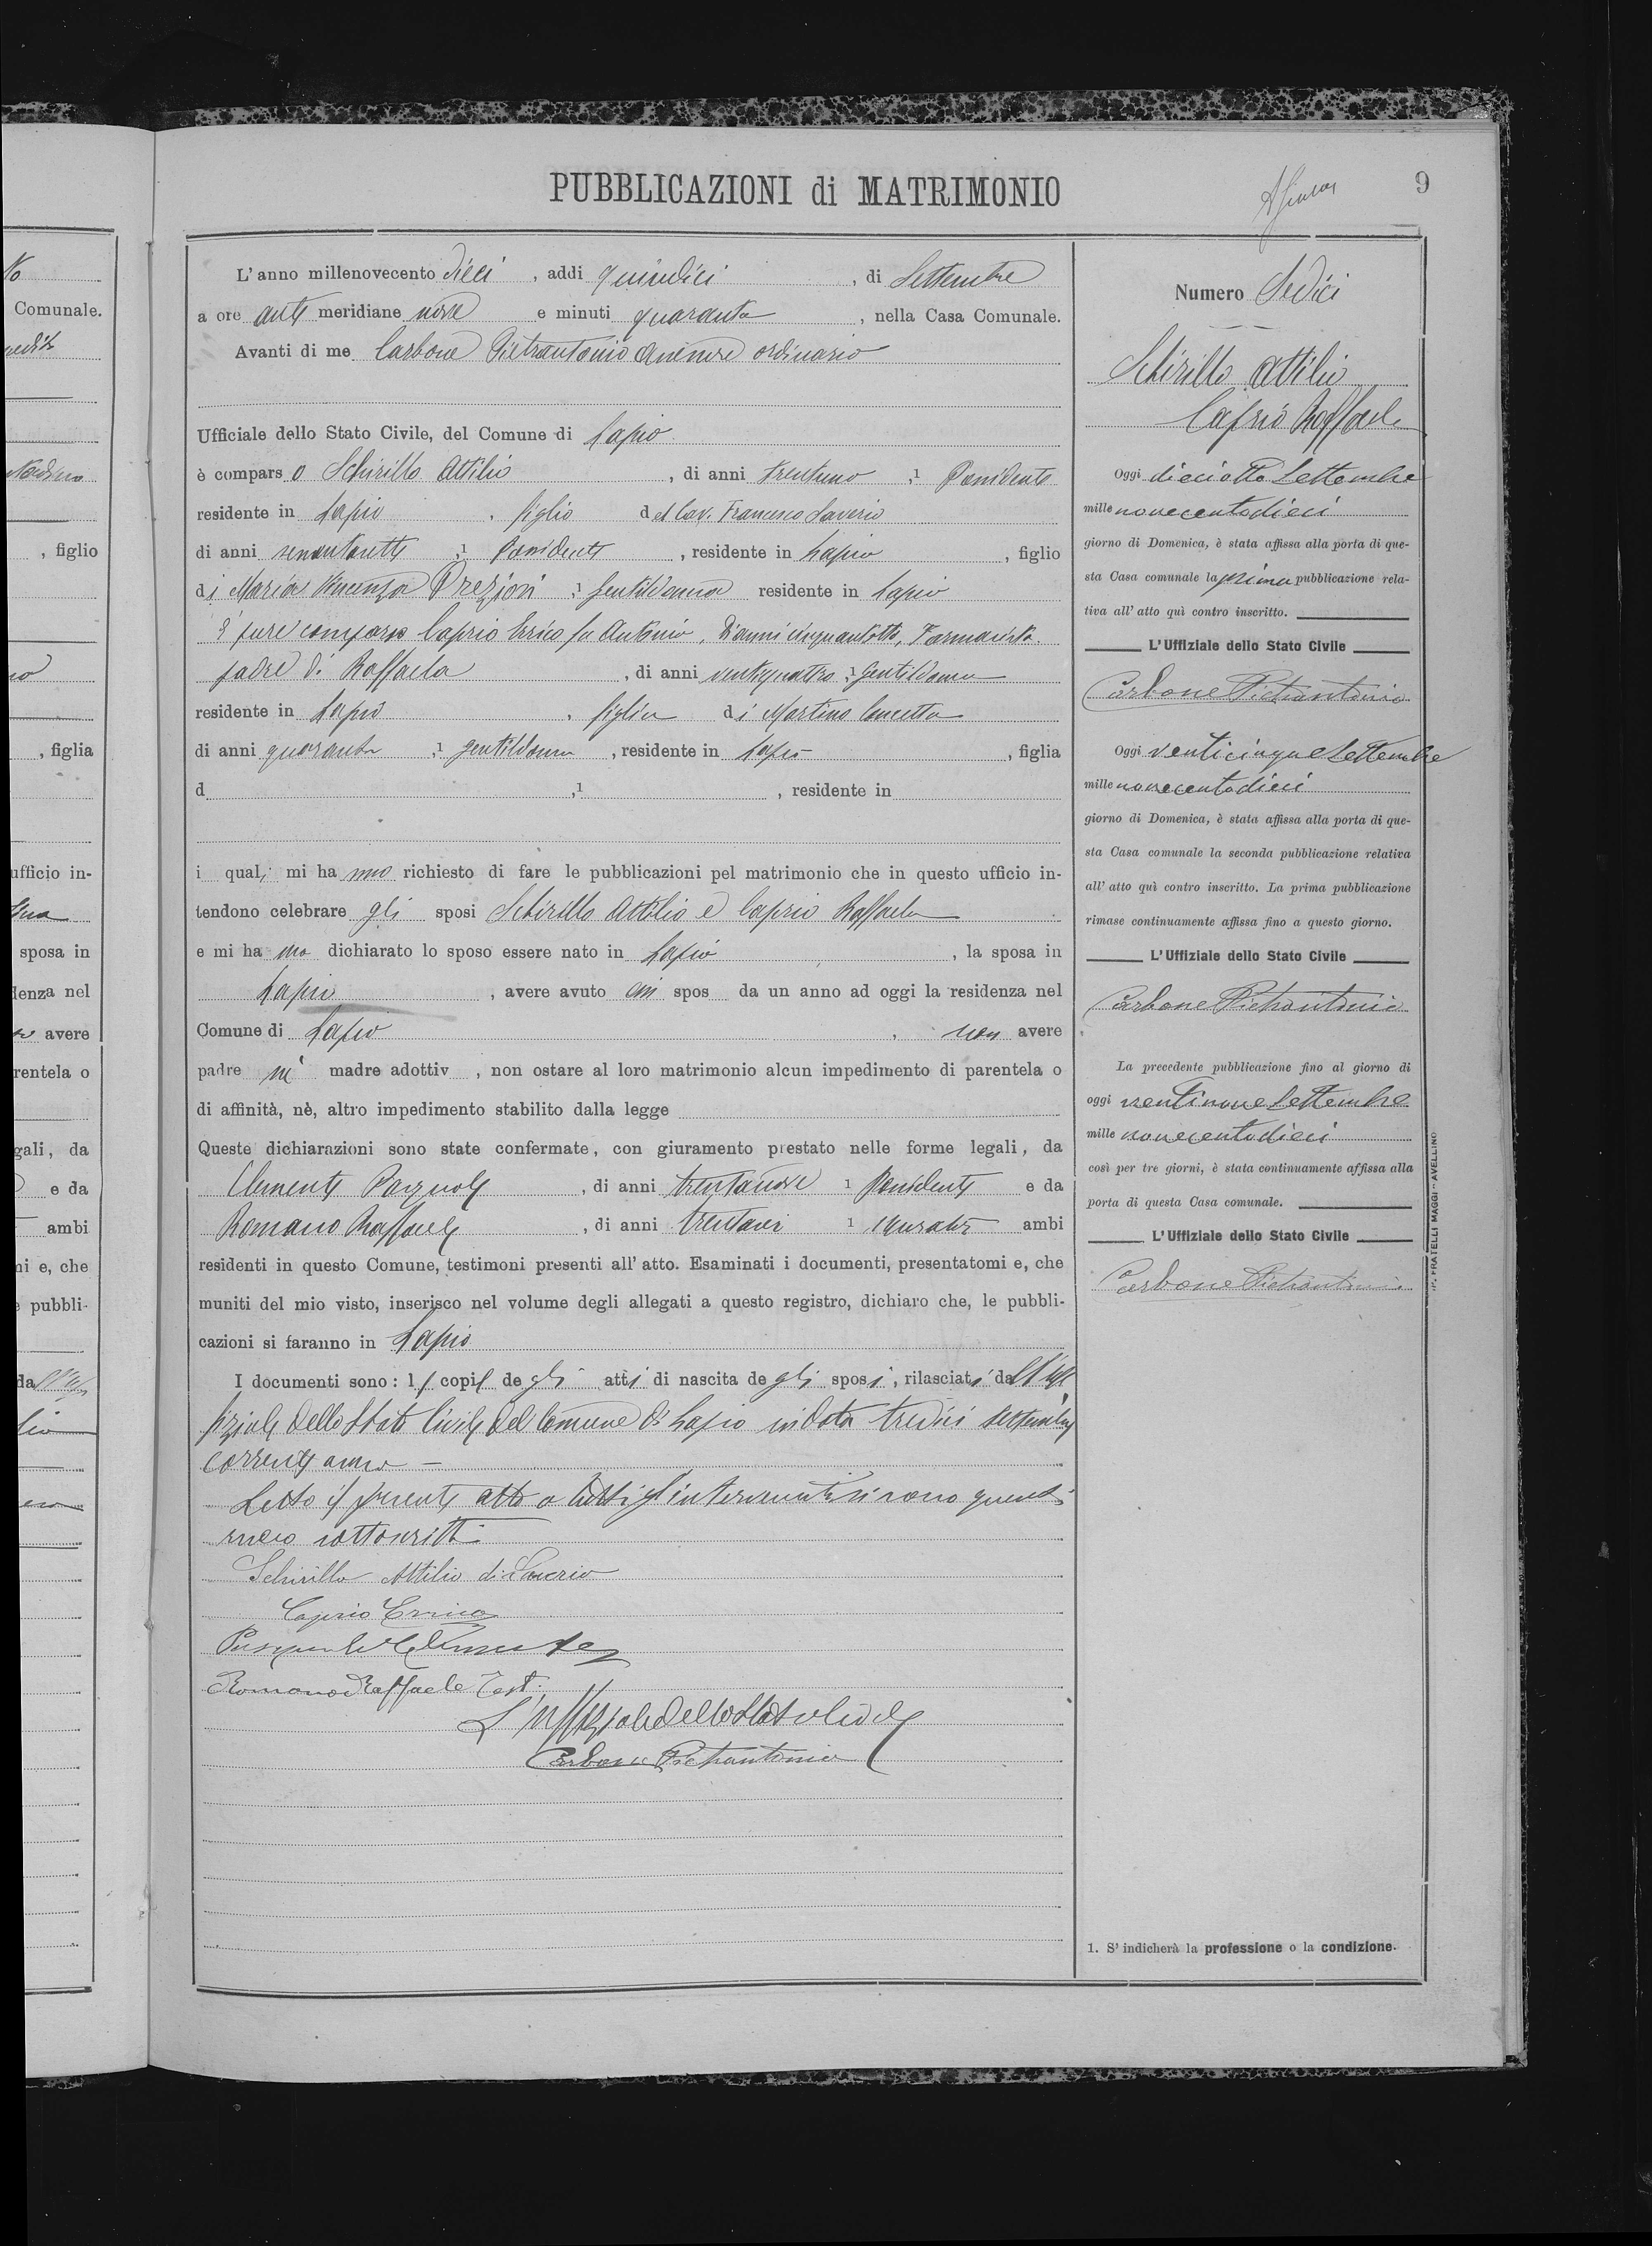 PUBBLICAZIONI di MATRIMONIO
9
L'anno millenovecento dieci , addi quindici , di Settembre
a ore anti meridiane nove e minuti quaranta , nella Casa Comunale.
Avanti di me Carbone Pietrantonio ordinario
Ufficiale dello Stato Civile, del Comune di Lapio
è compars o Schirillo Attilio , di anni trentuno ,1 Possidente
residente in Lapio , figlio del Cav. Francesco Saverio
di anni sessantasette ,1 Possidente , residente in Lapio , figlio
di Maria Vincenza Prezioni ,1 gentildonna residente in Lapio
È pure comparso Caprio Errico fu Antonio, d'anni cinquantotto, Farmacista
padre di Raffaela , di anni ventiquattro ,1 gentildonna
residente in Lapio , figlia di Martino Concetta
di anni quaranta ,1 gentildonna , residente in Lapio , figlia
d ,1 , residente in
i quali mi ha nno richiesto di fare le pubblicazioni pel matrimonio che in questo ufficio in-
tendono celebrare gli sposi Schirillo Attilio e Caprio Raffaela
e mi ha nno dichiarato lo sposo essere nato in Lapio , la sposa in
Lapio , avere avuto essi spos da un anno ad oggi la residenza nel
Comune di Lapio , non avere
padre nè madre adottiv , non ostare al loro matrimonio alcun impedimento di parentela o
di affinità, nè, altro impedimento stabilito dalla legge
Queste dichiarazioni sono state confermate, con giuramento prestato nelle forme legali, da
Clemente Pasquale , di anni trentanove 1 Possidente e da
Romano Raffaele , di anni trentasei 1 muratore ambi
residenti in questo Comune, testimoni presenti all'atto. Esaminati i documenti, presentatomi e, che
muniti del mio visto, inserisco nel volume degli allegati a questo registro, dichiaro che, le pubbli-
cazioni si faranno in Lapio
I documenti sono: le copie degli atti di nascita degli sposi, rilasciati dall'Uf
fiziale dello Stato Civile del Comune di Lapio in data tredici settembre
corrente anno —
Letto il presente atto a tutti gl'intervenuti si sono questi
meco sottoscritti
Schirillo Attilio di Saverio
Caprio Errico
Pasquale Clemente
Romano Raffaele Test.
L'uffiziale dello Stato Civile
Carbone Pietrantonio
Numero Sedici
Schirillo Attilio
Caprio Raffaela
Oggi dieciotto Settembre
mille novecentodieci
giorno di Domenica, è stata affissa alla porta di que-
sta Casa comunale la prima pubblicazione rela-
tiva all'atto quì contro inscritto.
L'Uffiziale dello Stato Civile
Carbone Pietrantonio
Oggi venticinque Settembre
mille novecentodieci
giorno di Domenica, è stata affissa alla porta di que-
sta Casa comunale la seconda pubblicazione relativa
all'atto quì contro inscritto. La prima pubblicazione
rimase continuamente affissa fino a questo giorno.
L'Uffiziale dello Stato Civile
Carbone Pietrantonio
La precedente pubblicazione fino al giorno di
oggi ventinove Settembre
mille novecentodieci
così per tre giorni, è stata continuamente affissa alla
porta di questa Casa comunale.
L'Uffiziale dello Stato Civile
Carbone Pietrantonio
FRATELLI MAGGI - AVELLINO
1. S'indicherà la professione o la condizione.
Comunale.
, figlio
, figlia
ufficio in-
sposa in
denza nel
avere
rentela o
gali, da
e da
ambi
ni e, che
e pubbli-
da